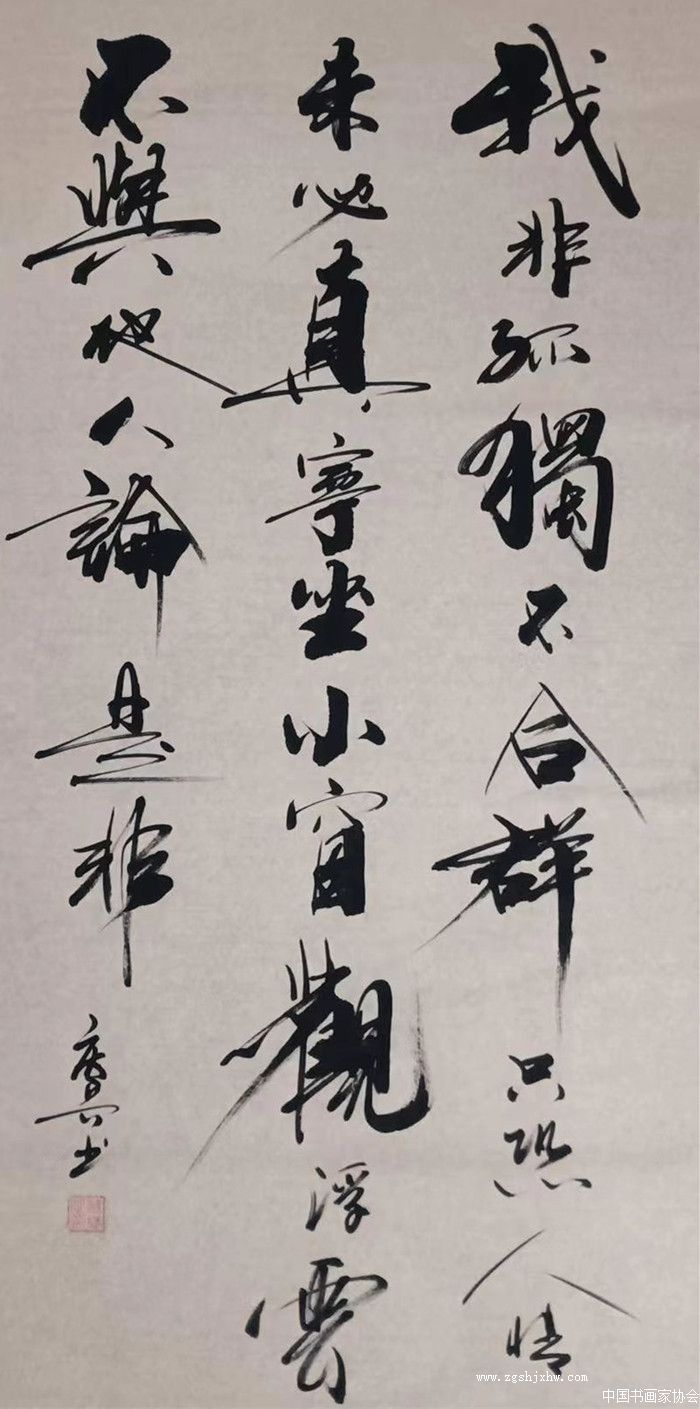 我非孤獨不合群只恐人情
未必真寧坐小窗觀浮雲
不與他人論是非
書
www.zgshjxhw.com
中国书画家协会